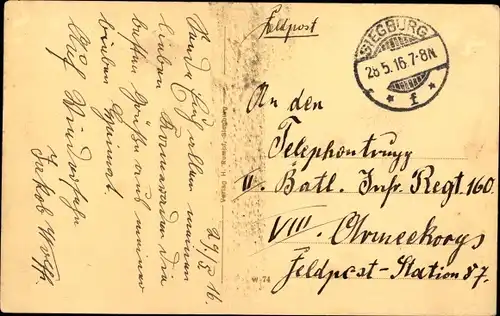 Feldpost
SIEGBURG
28.5.16.7-8N.
f
An den
Telephontrupp
II. Batl. Inf. Regt. 160.
VIII. Armeekorps
Feldpost-Station 87.
29/5 16.
Sende Euch allen meinen
lieben Kameraden die
besten Grüße aus meiner
lieben Heimat.
Auf Wiedersehn
Jakob Wolff.
W. 74